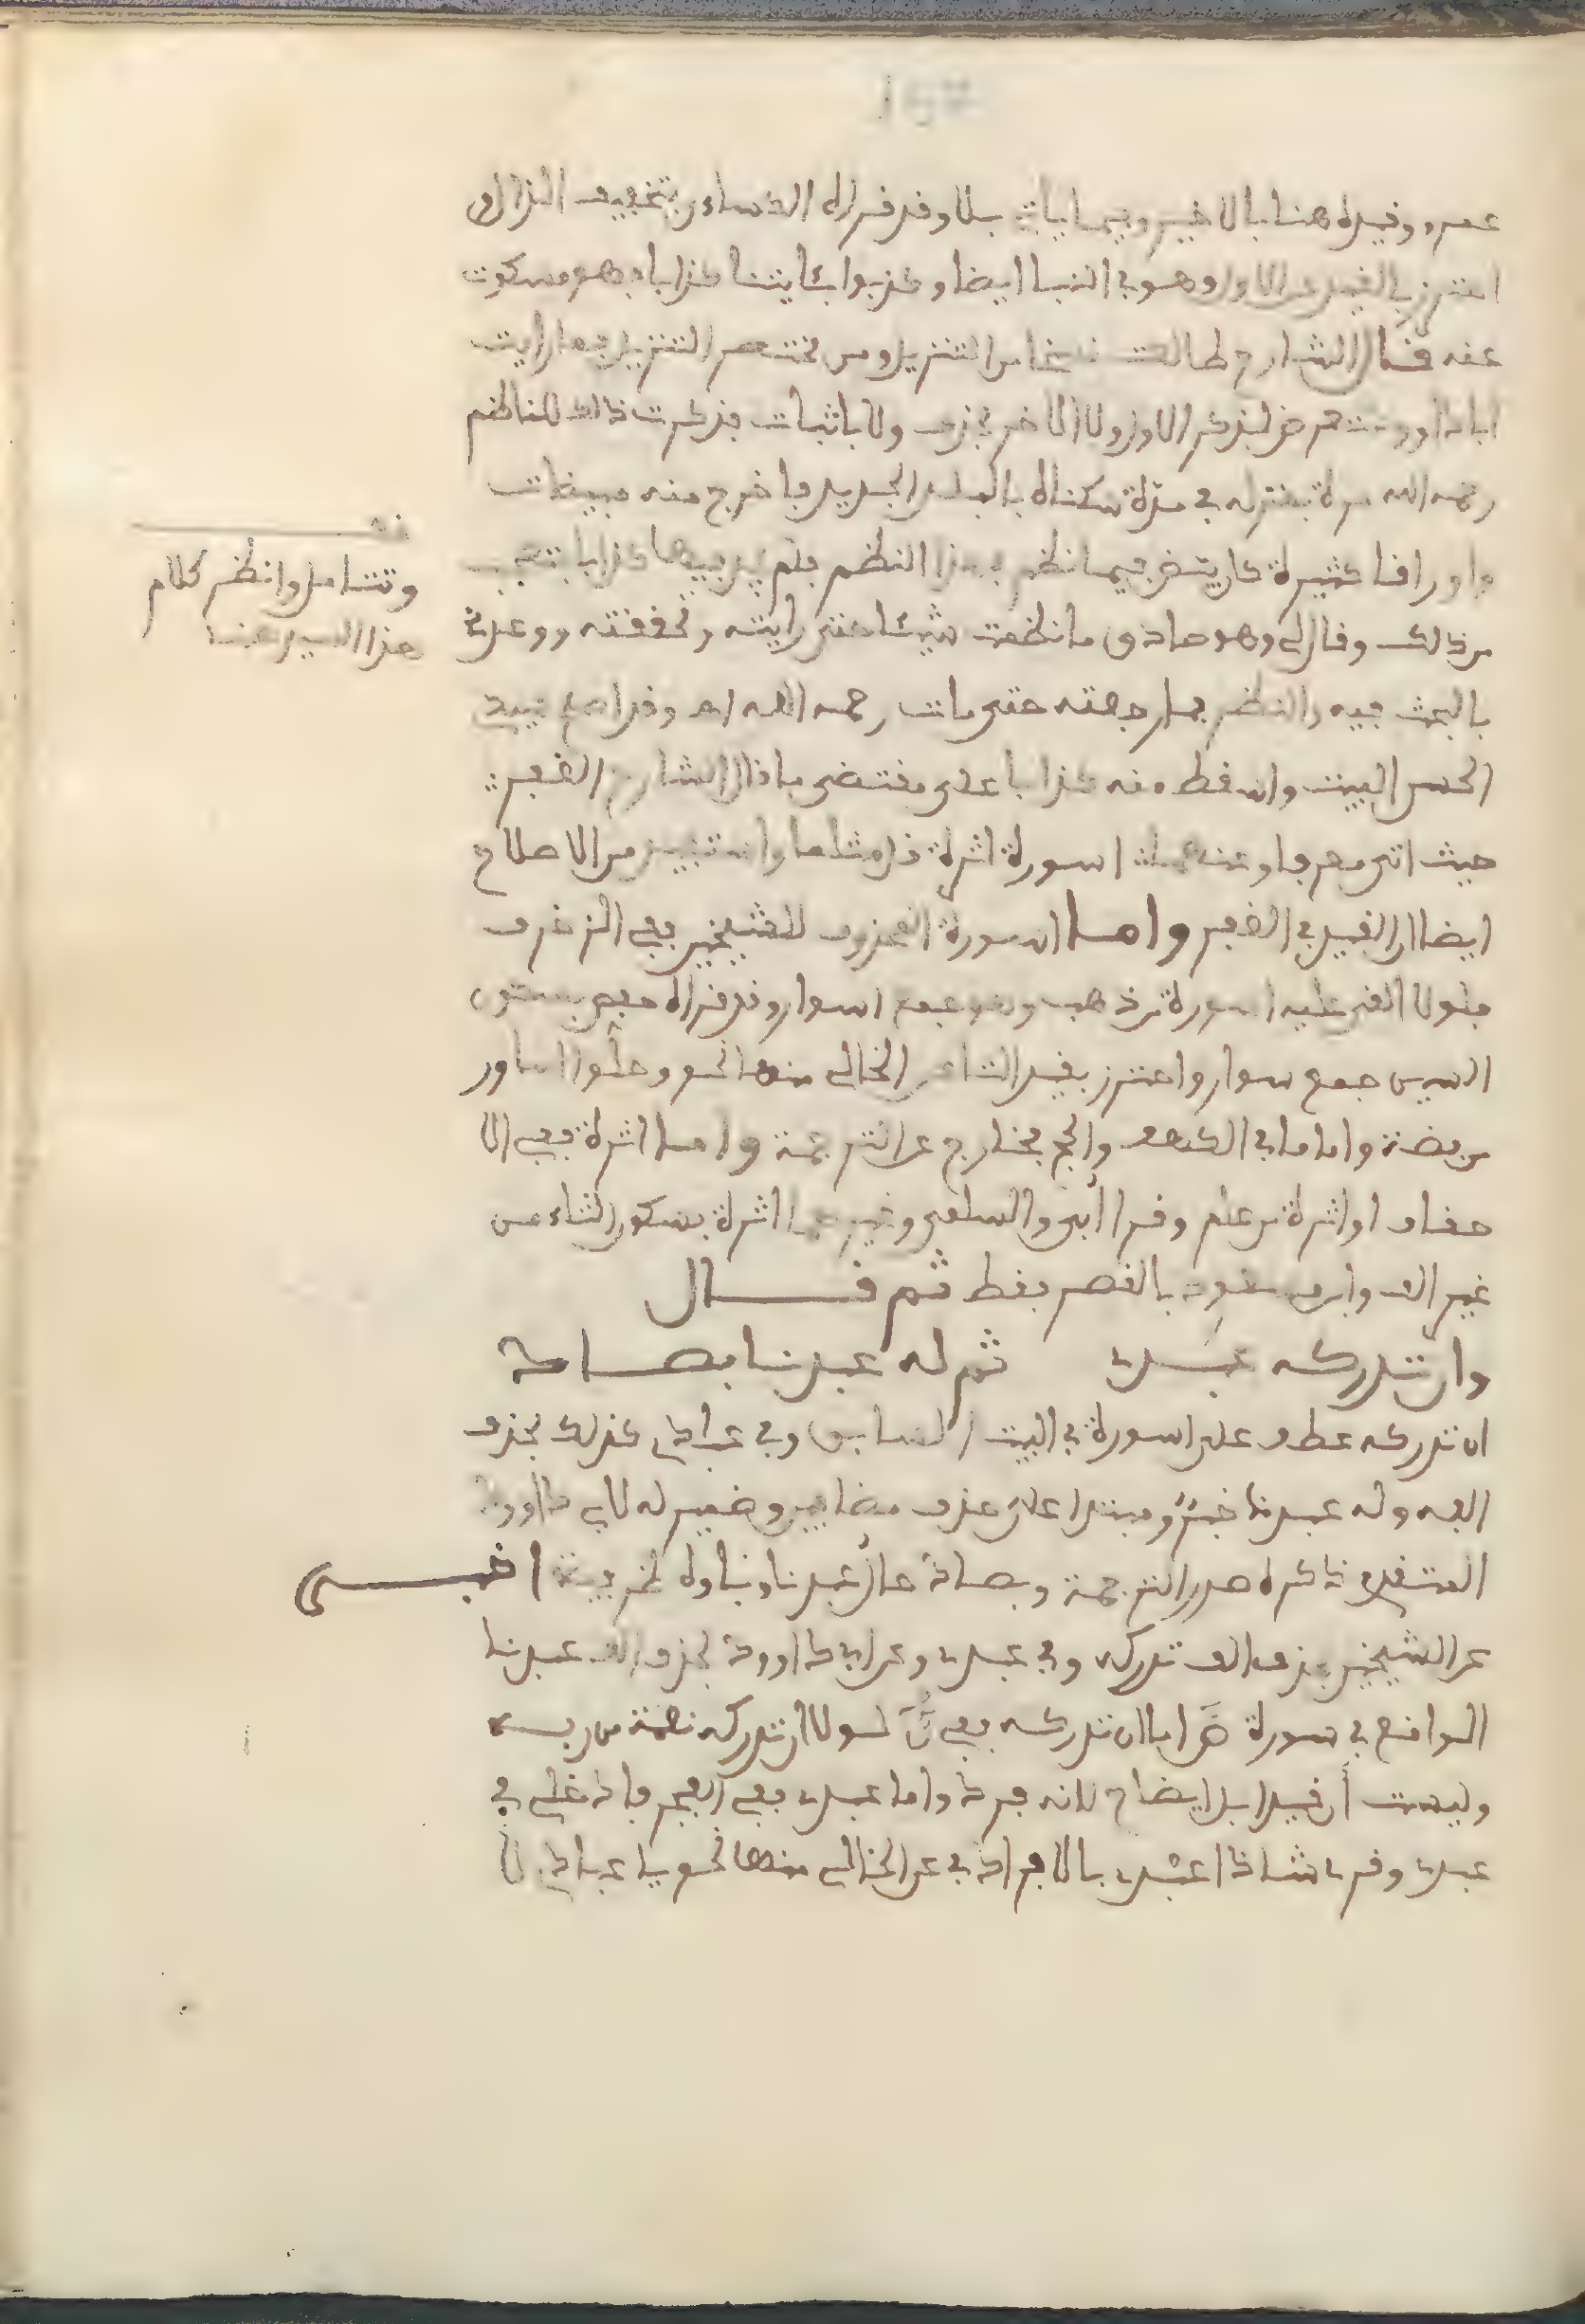 عمرو وقيده هنا بالاخير وبما ياتي بلا وقد قراه الكساءي بتخفيف الذال و
احترز بالقيد عن الاول وهو في النبا ايضا وكذبوا بئايتنا كذابا فهو مسكوت
عنه قال الشارح طالعت نسخا من التنزيل ومن مختصر التنزيل فما رايت
ابا داوود تعرض لذكر الاول ولا الاخر بحذف ولا باثبات فذكرت ذلك للناظم
رحمه الله مرة بمنزله في مدة سكناه بالبلد الجديد فاخرج منه مبيضات
واوراقا كثيرة كان ينظر فيما نظم بهذا النظم فلم يجد فيها كذابا فتعجب
من ذلك وقال لي وهو صادق ما نظمت شيئا حتى رايته وتحققته ووعدني
بالبحث فيه والنظر فما رجعته حتى مات رحمه الله اهـ وقد اصلح بيت
الحسن البيت واسقط منه كذابا على مقتضى ما قال الشارح الفجر
حيث اتى معرفا وعنهما اسورة اثرة قل مثلها واستفيد من الاصلاح
ايضا ان القيد في الفجر واما اسورة المحذوف للشيخين ففي الزخرف
فلولا القي عليه اسورة من ذهب وهو جمع اسوار وقد قراه حفص بسكون
السين جمع سوار واحترز بقيد التاء عن الخالي منها نحو وحلوا اساور
من فضة واما ما في الكهف والحج فخارج عن الترجمة واما اثرة ففي الا
حقاف او اثرة من علم وقرا أبي والسلمي وغيرهما اثرة بسكون الثاء من
غير الف وابن مسعود بالقصر فقط ثم قال
وان تدركه عبدي ثم له عبدنا بصاد
ان تدركه عطف على اسورة في البيت السابق وفي عبادي كذلك بحذف
الفه وله عبدنا خبرٌ ومبتدا على حذف مضافين وضمير له لابي داوود
المتقدم ذكره صدر الترجمة وبصاد حال عبدنا وباوه ظرفية اخبـــر
عن الشيخين بحذف الف تدركه وفي عبدي وعن ابي داوود بحذف الف عبدنا
الواقع في سورة صَ اما ان تدركه ففي نَ لولا ان تدركه نعمة من ربه
وليست أن قيدا بل ايضاح لانه فرد واما عبدي ففي الفجر فادخلي في
عبدي وقرئ شاذا عبْدي بالافراد في عن الخالي منها نحو يا عبادي لا
وتتامل وانظر كلام
هذا السيد هنا